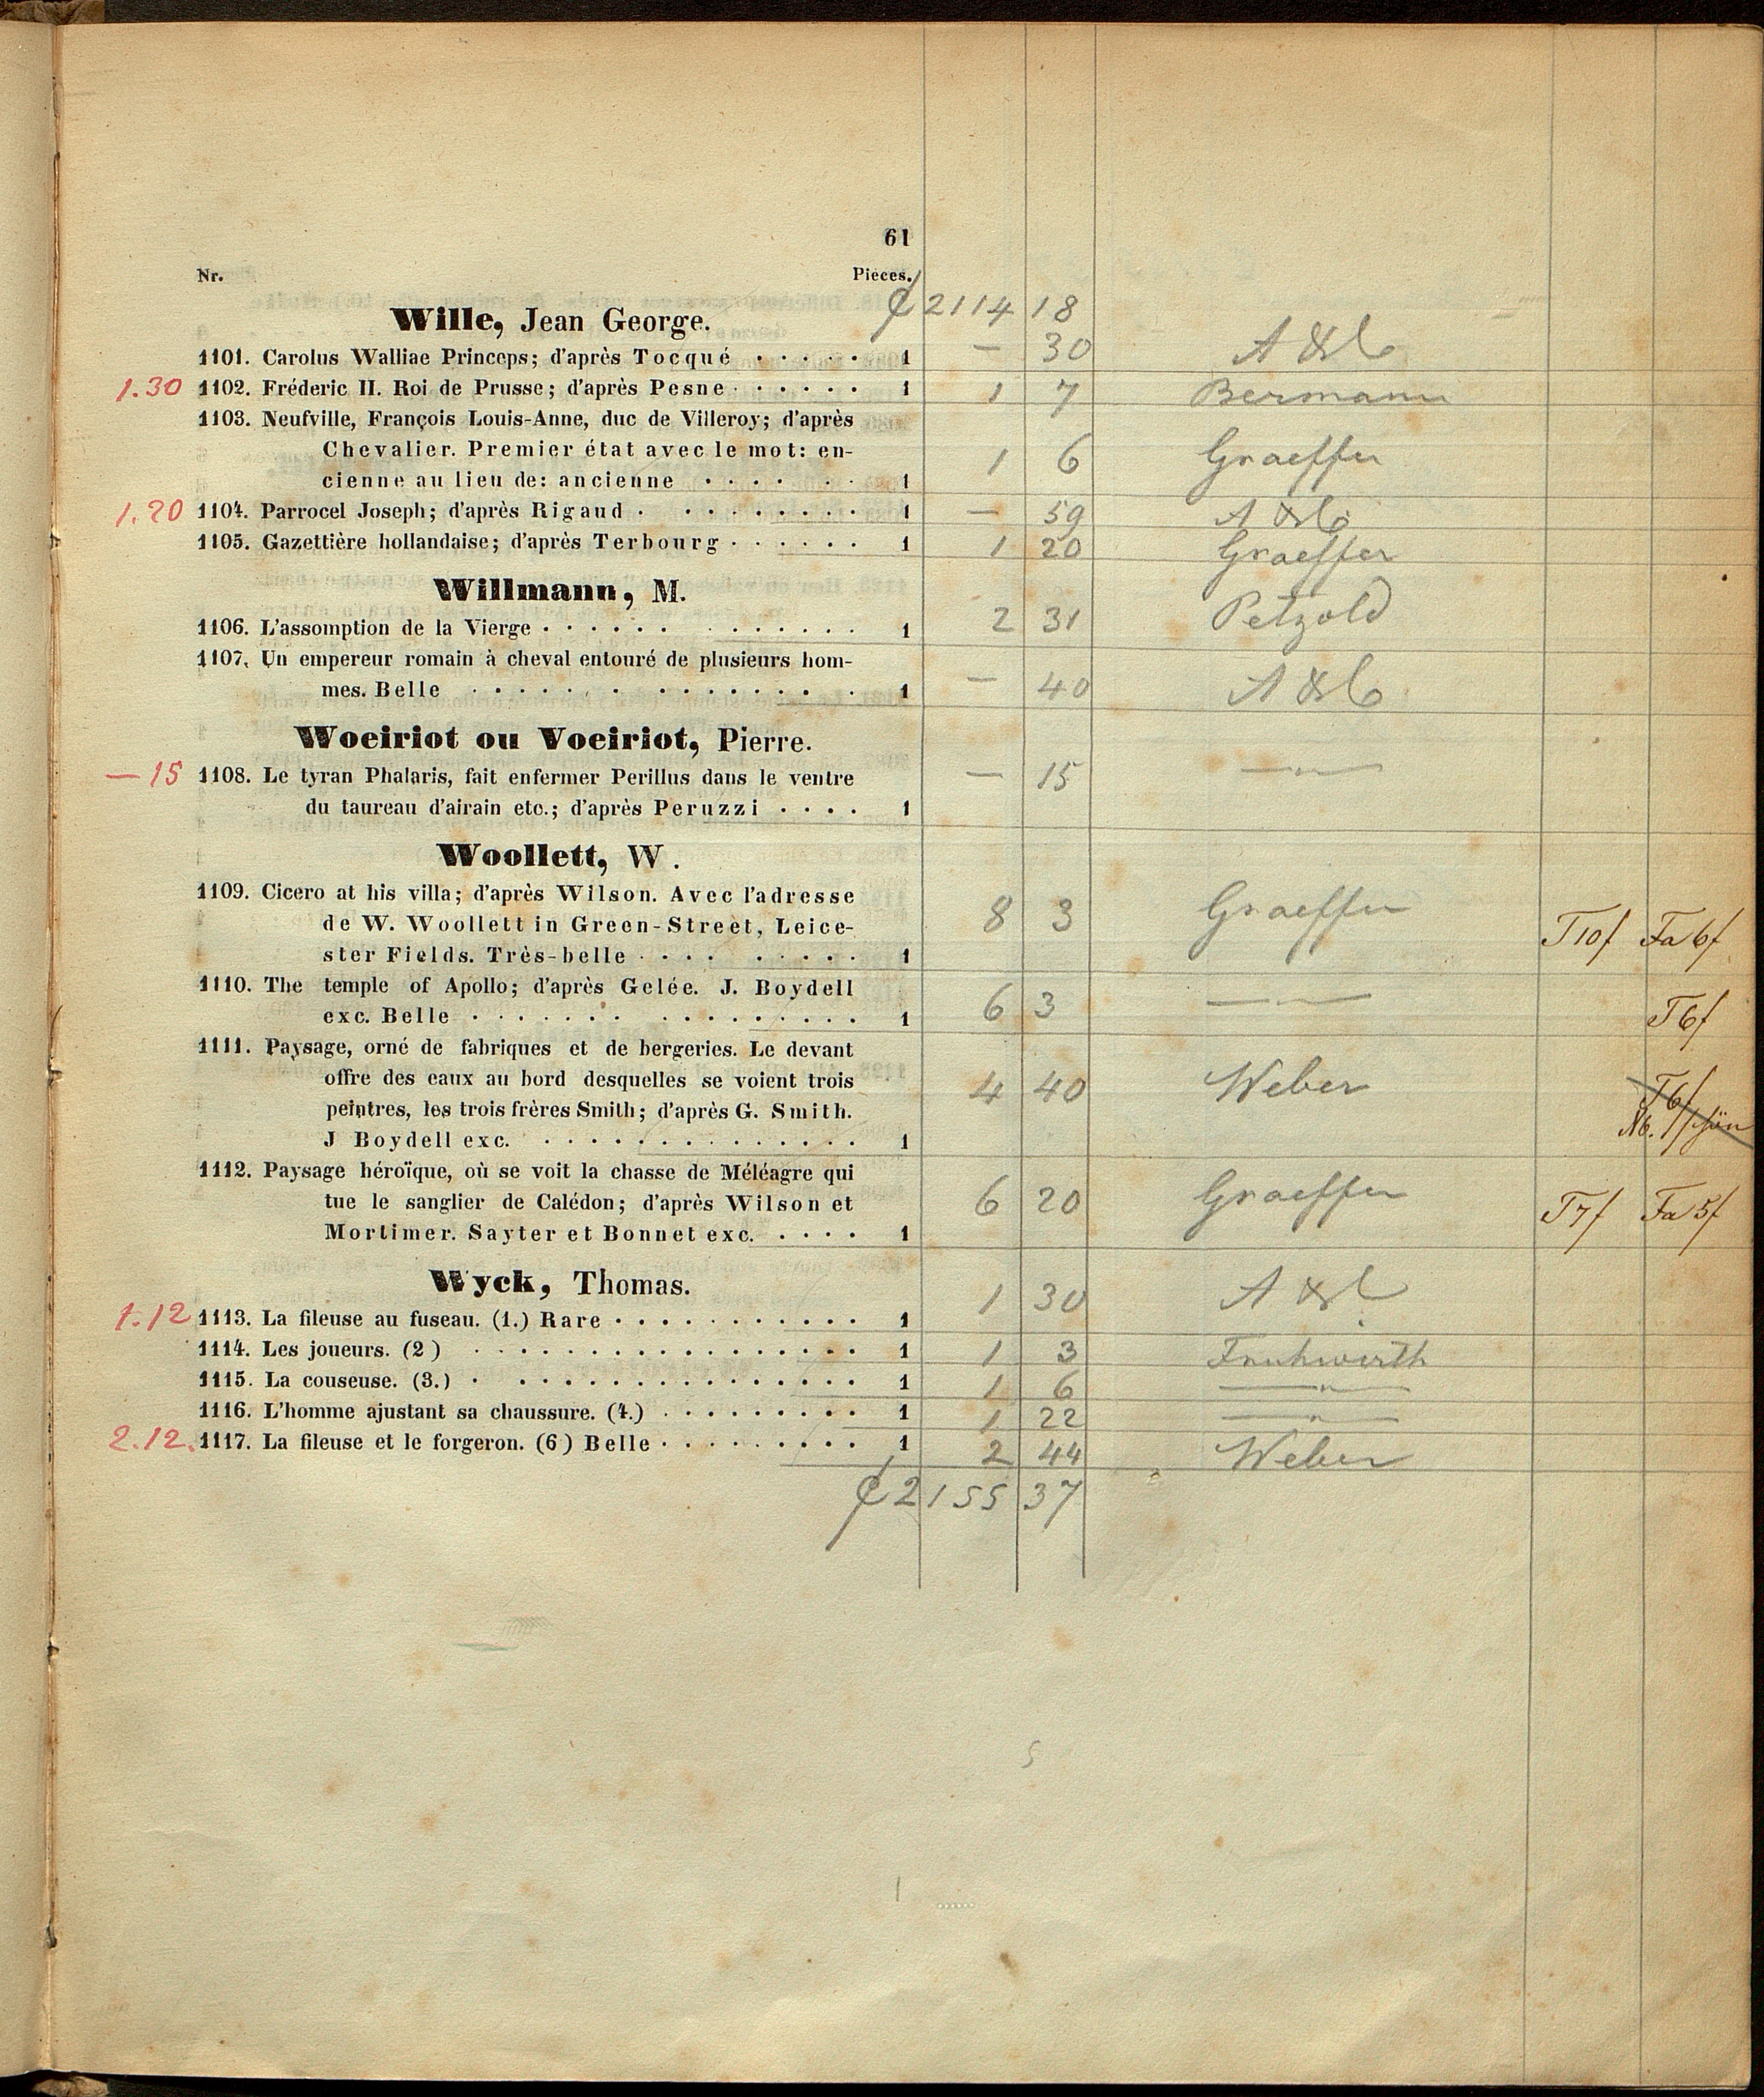 61
Nr. Pièces.
2114 18
Wille, Jean George.
1101. Carolus Walliae Princeps; d'après Tocqué . . . . . 1 — 30
1.30 1102. Fréderic II. Roi de Prusse; d'après Pesne . . . . . . 1 1 7 Bermann
1103. Neufville, François Louis-Anne, duc de Villeroy; d'après
Chevalier. Premier état avec le mot: en-
cienne au lieu de: ancienne . . . . . . 1 1 6 Graeffer
1.20 1104. Parrocel Joseph; d'après Rigaud . . . . . . . . . 1 — 59
1105. Gazettière hollandaise; d'après Terbourg . . . . . . 1 1 20 Graeffer
Willmann, M.
1106. L'assomption de la Vierge . . . . . . . . . . . . . 1 2 31 Petzold
1107. Un empereur romain à cheval entouré de plusieurs hom-
mes. Belle . . . . . . . . . . . . . . . 1 — 40
Woeiriot ou Voeiriot, Pierre.
— 15 1108. Le tyran Phalaris, fait enfermer Perillus dans le ventre — 15 —"—
du taureau d'airain etc.; d'après Peruzzi . . . . 1
Woollett, W.
1109. Cicero at his villa; d'après Wilson. Avec l'adresse
de W. Woollett in Green-Street, Leice- 8 3 Graeffer T10f Fa 6f
ster Fields. Très-belle . . . . . . . . . 1
1110. The temple of Apollo; d'après Gelée. J. Boydell
exc. Belle . . . . . . . . . . . . . . . . 1 6 3 —"— T6f
1111. Paysage, orné de fabriques et de bergeries. Le devant
offre des eaux au bord desquelles se voient trois 4 40 Weber T6f
peintres, les trois frères Smith; d'après G. Smith.
J Boydell exc. . . . . . . . . . . . . . . 1
1112. Paysage héroïque, où se voit la chasse de Méléagre qui
tue le sanglier de Calédon; d'après Wilson et 6 20 Graeffer T7f Fa 5f
Mortimer. Sayter et Bonnet exc. . . . . 1
Wyck, Thomas.
1.12 1113. La fileuse au fuseau. (1.) Rare . . . . . . . . . . . 1 1 30
1114. Les joueurs. (2) . . . . . . . . . . . . . . . . . 1 1 3 Fruhwirth
1115. La couseuse. (3.) . . . . . . . . . . . . . . . . 1 1 6 —"—
1116. L'homme ajustant sa chaussure. (4.) . . . . . . . . . 1 1 22 —"—
2.12. 1117. La fileuse et le forgeron. (6) Belle . . . . . . . . . 1 2 44 Weber
2155 37